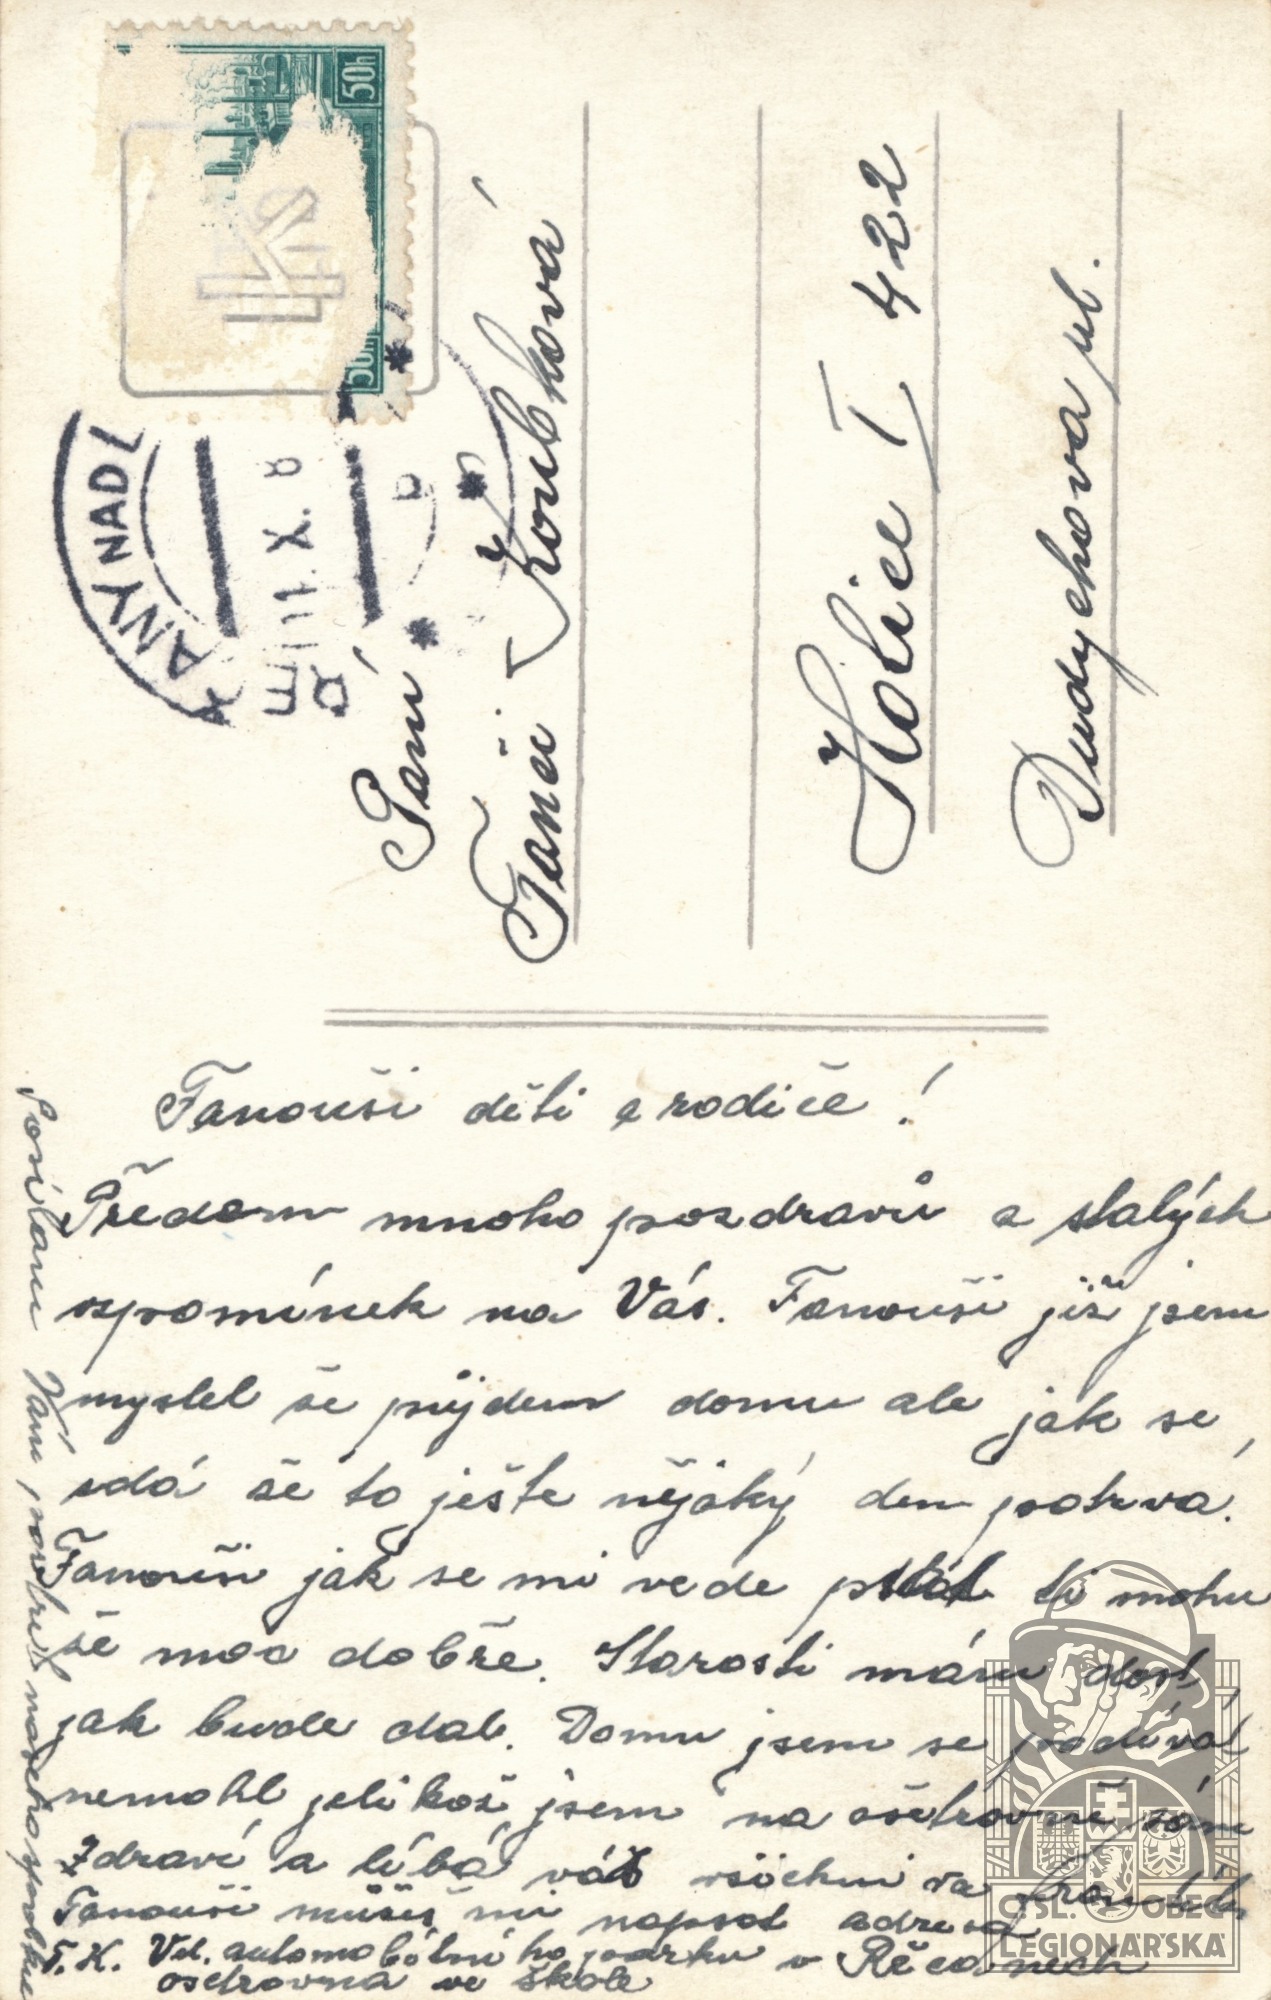 50h
50h
ANY NAD L
11.X.
Paní
Fanči Koubková
Holice I 422
Dudychova ul.
Fanouši děti a rodiče!
Předem mnoho pozdravů a stalých
vzpomínek na Vás. Fanouši již jsem
myslel še půjdem domu ale jak se
zdá še to ješte nějaký den potrvá.
Fanouši jak se mi vede psát ti mohu
še moc dobře. Starosti mám dost,
jak bude dál. Domu jsem se podívat
nemohl jelikož jsem na ošetrovně sám
Zdraví a líbá vás všichni
Fanouši můšeš mi napsat adresa
F.K. Vel. automobilního parku v Řečanech
osetrovna ve škole
Posílám Vám
C.SL. OBEC
LEGIONÁŘSKÁ